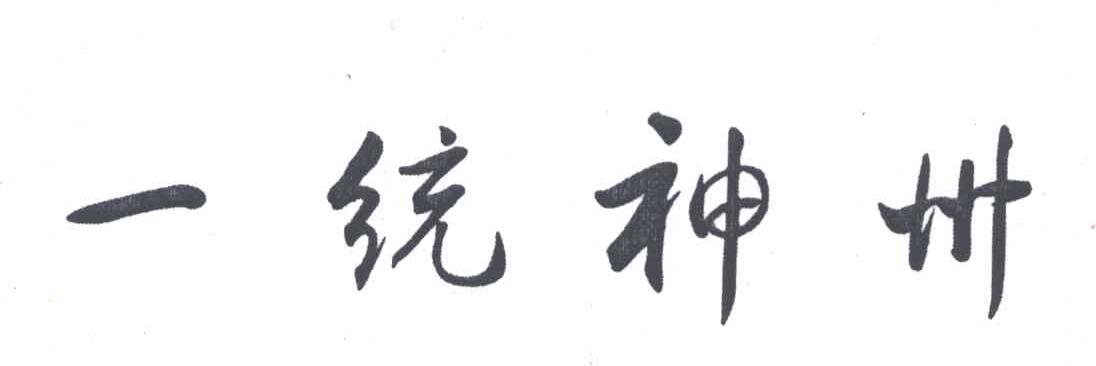 一统神州